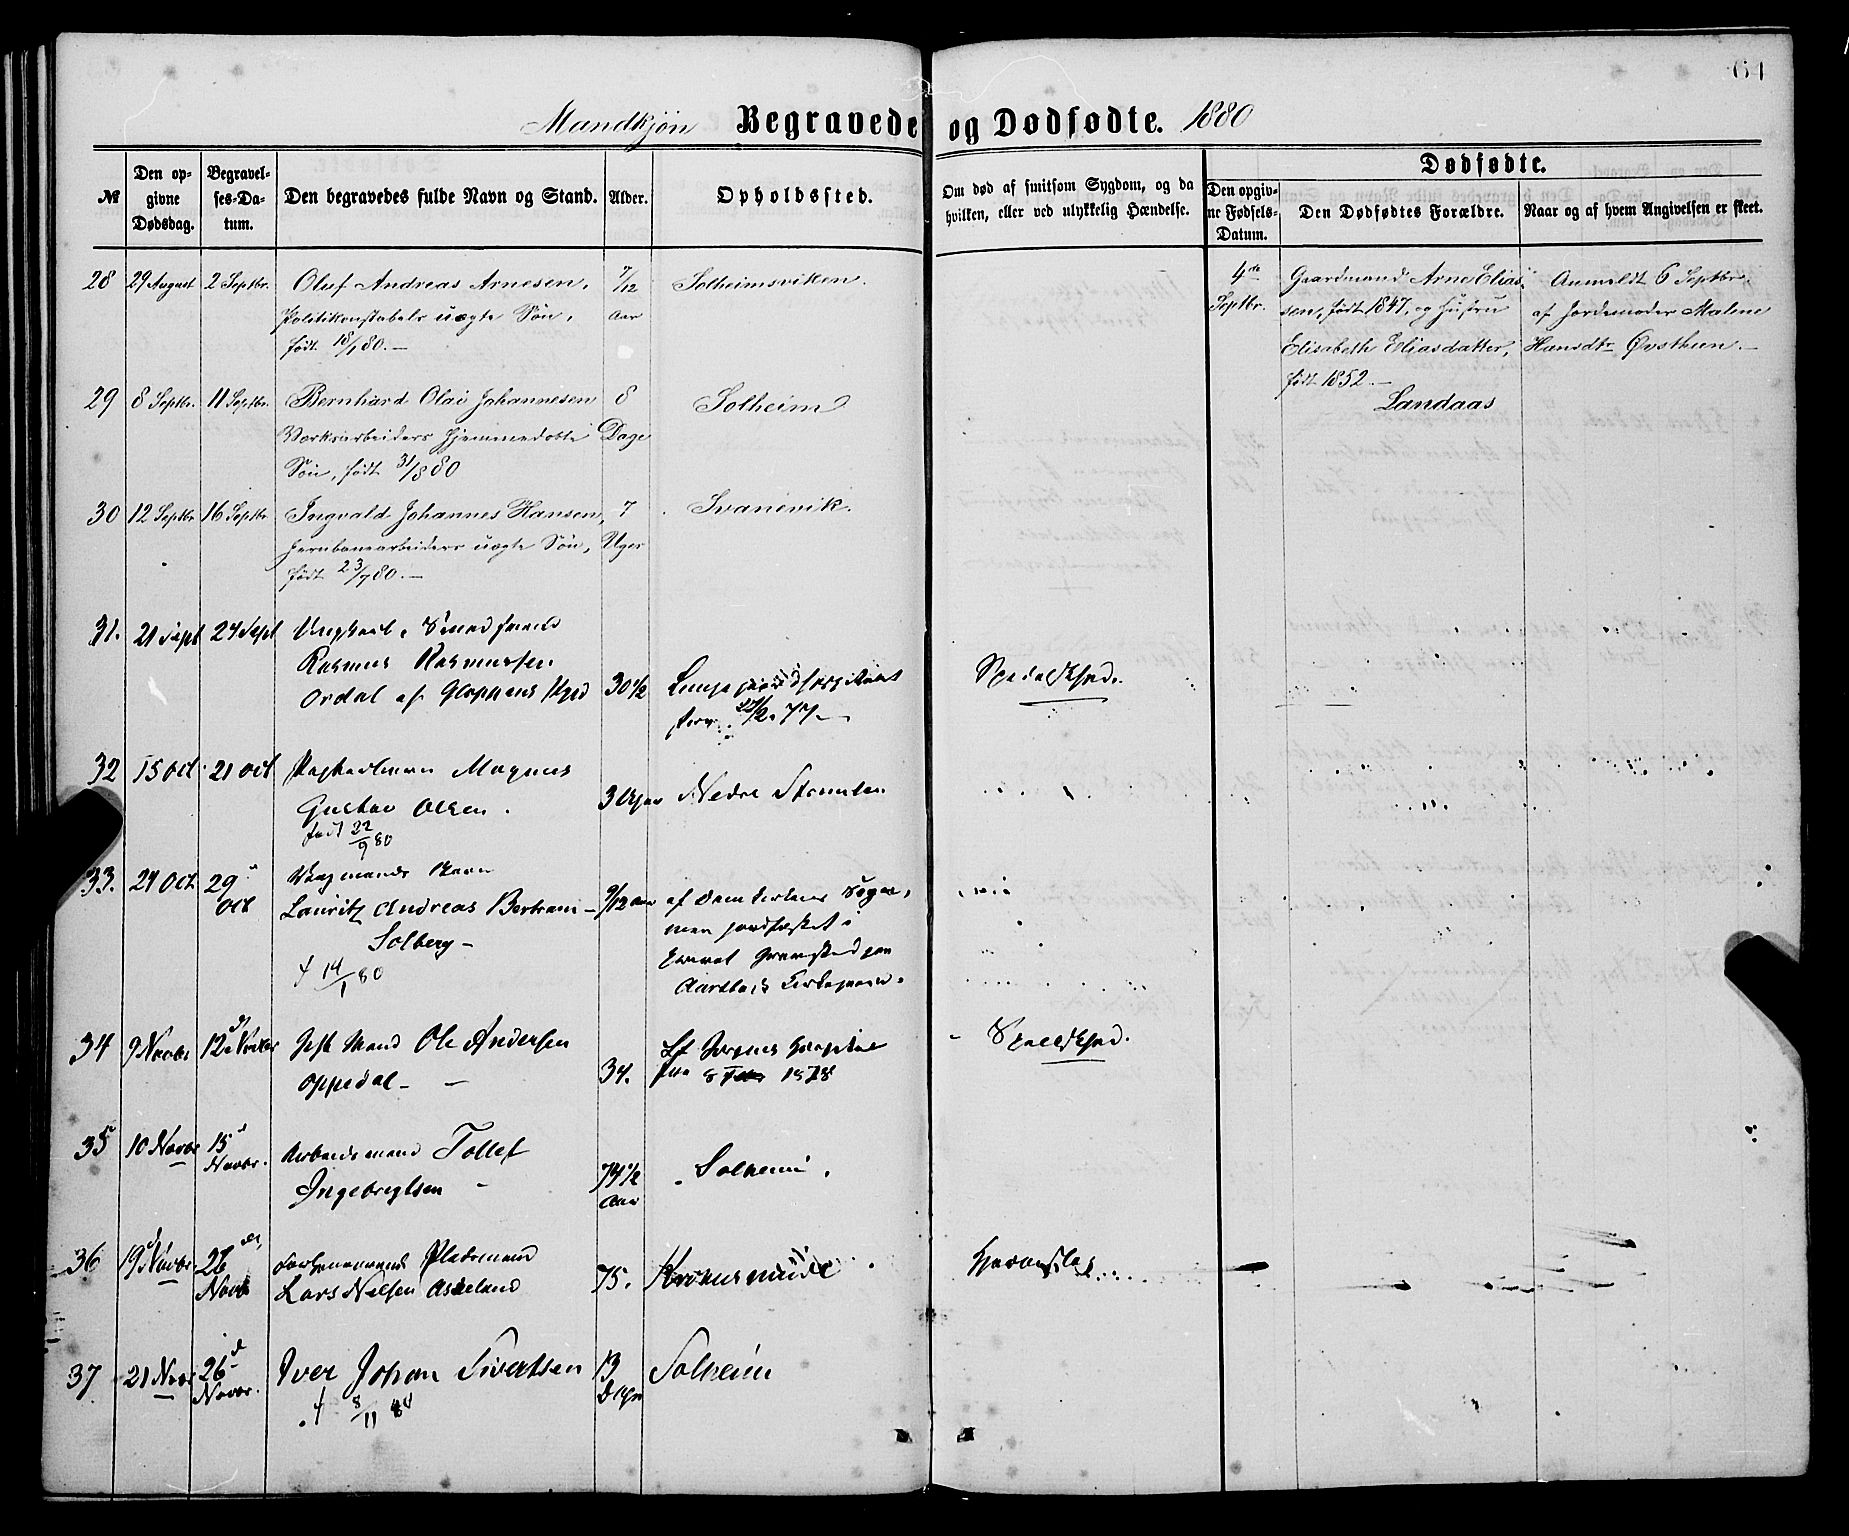 64
Mandkjøn Begravede og Dødfødte. 1880
№ Den opgivne Dødsdag. Begravelses-Datum. Den begravedes fulde Navn og Stand. Alder. Opholdssted. Om død af smitsom Sygdom, og da hvilken, eller ved ulykkelig Hændelse. Dødfødte. Den opgivne Fødsels-Datum. Den Dødfødtes Forældre. Naar og af hvem Angivelsen er skeet.
28 29 August 2 Septbr. Oluf Andreas Arnesen, 7/12 Solheimsviken.
Politikonstabels uægte Søn, Aar
født 18/1 80.—
4de Gaardmand Arne Elias- Anmeldt 6 Septbr.
Septbr. sen, født 1847, og Hustru af Jordemoder Malene
Elisabeth Eliasdatter, Hansdtr Øvsthun.—
født 1852.—
Landaas
29 8 Septbr. 11 Septbr. Bernhard Olai Johannesen 8 Solheim
Værksarbeiders hjemmedøbte Dage
Søn, født 31/8 80
30 12 Septbr 16 Septbr Ingvald Johannes Hansen, 7 Svanevik.
Jernbanearbeiders uægte Søn, Uger
født 23/7 80.—
31. 21 Sept 24 Sept Ungkarl, Smedsvend
Rasmus Rasmussen
Ordal af Gloppens 30 1/2
77— Spedalskhed.
32 15 Oct. 21 Oct Magnus
Gustav Olsen. 3 Uger Nedre Stømlen
født 22/9 80
33. 24 Oct. 29 Oct
Lauritz Andreas Bertram 9/12 Aar af Domkirkens Sogn,
Solberg — men jordfæstet i
f 14/1 80 privat Gravsted paa
Aarstads Kirkegaard.
34 9 Novbr 12 Novbr Gift Mand Ole Andersen
Oppedal — 34. Jørgens Hospital
8 1878
Spedalskhed.
35 10 Novbr 15 Novbr. Arbeidsmand Tollef
Ingebrigtsen 74 1/2 Aar Solheim.
36 19 Novbr. 26 Novb Pladsmand
Lars Nilsen Askeland 75. Kronesminde
37 21 Novr 26 Novbr. Iver Johan Sivertsen 13 Dage Solheim
f 8/11 80